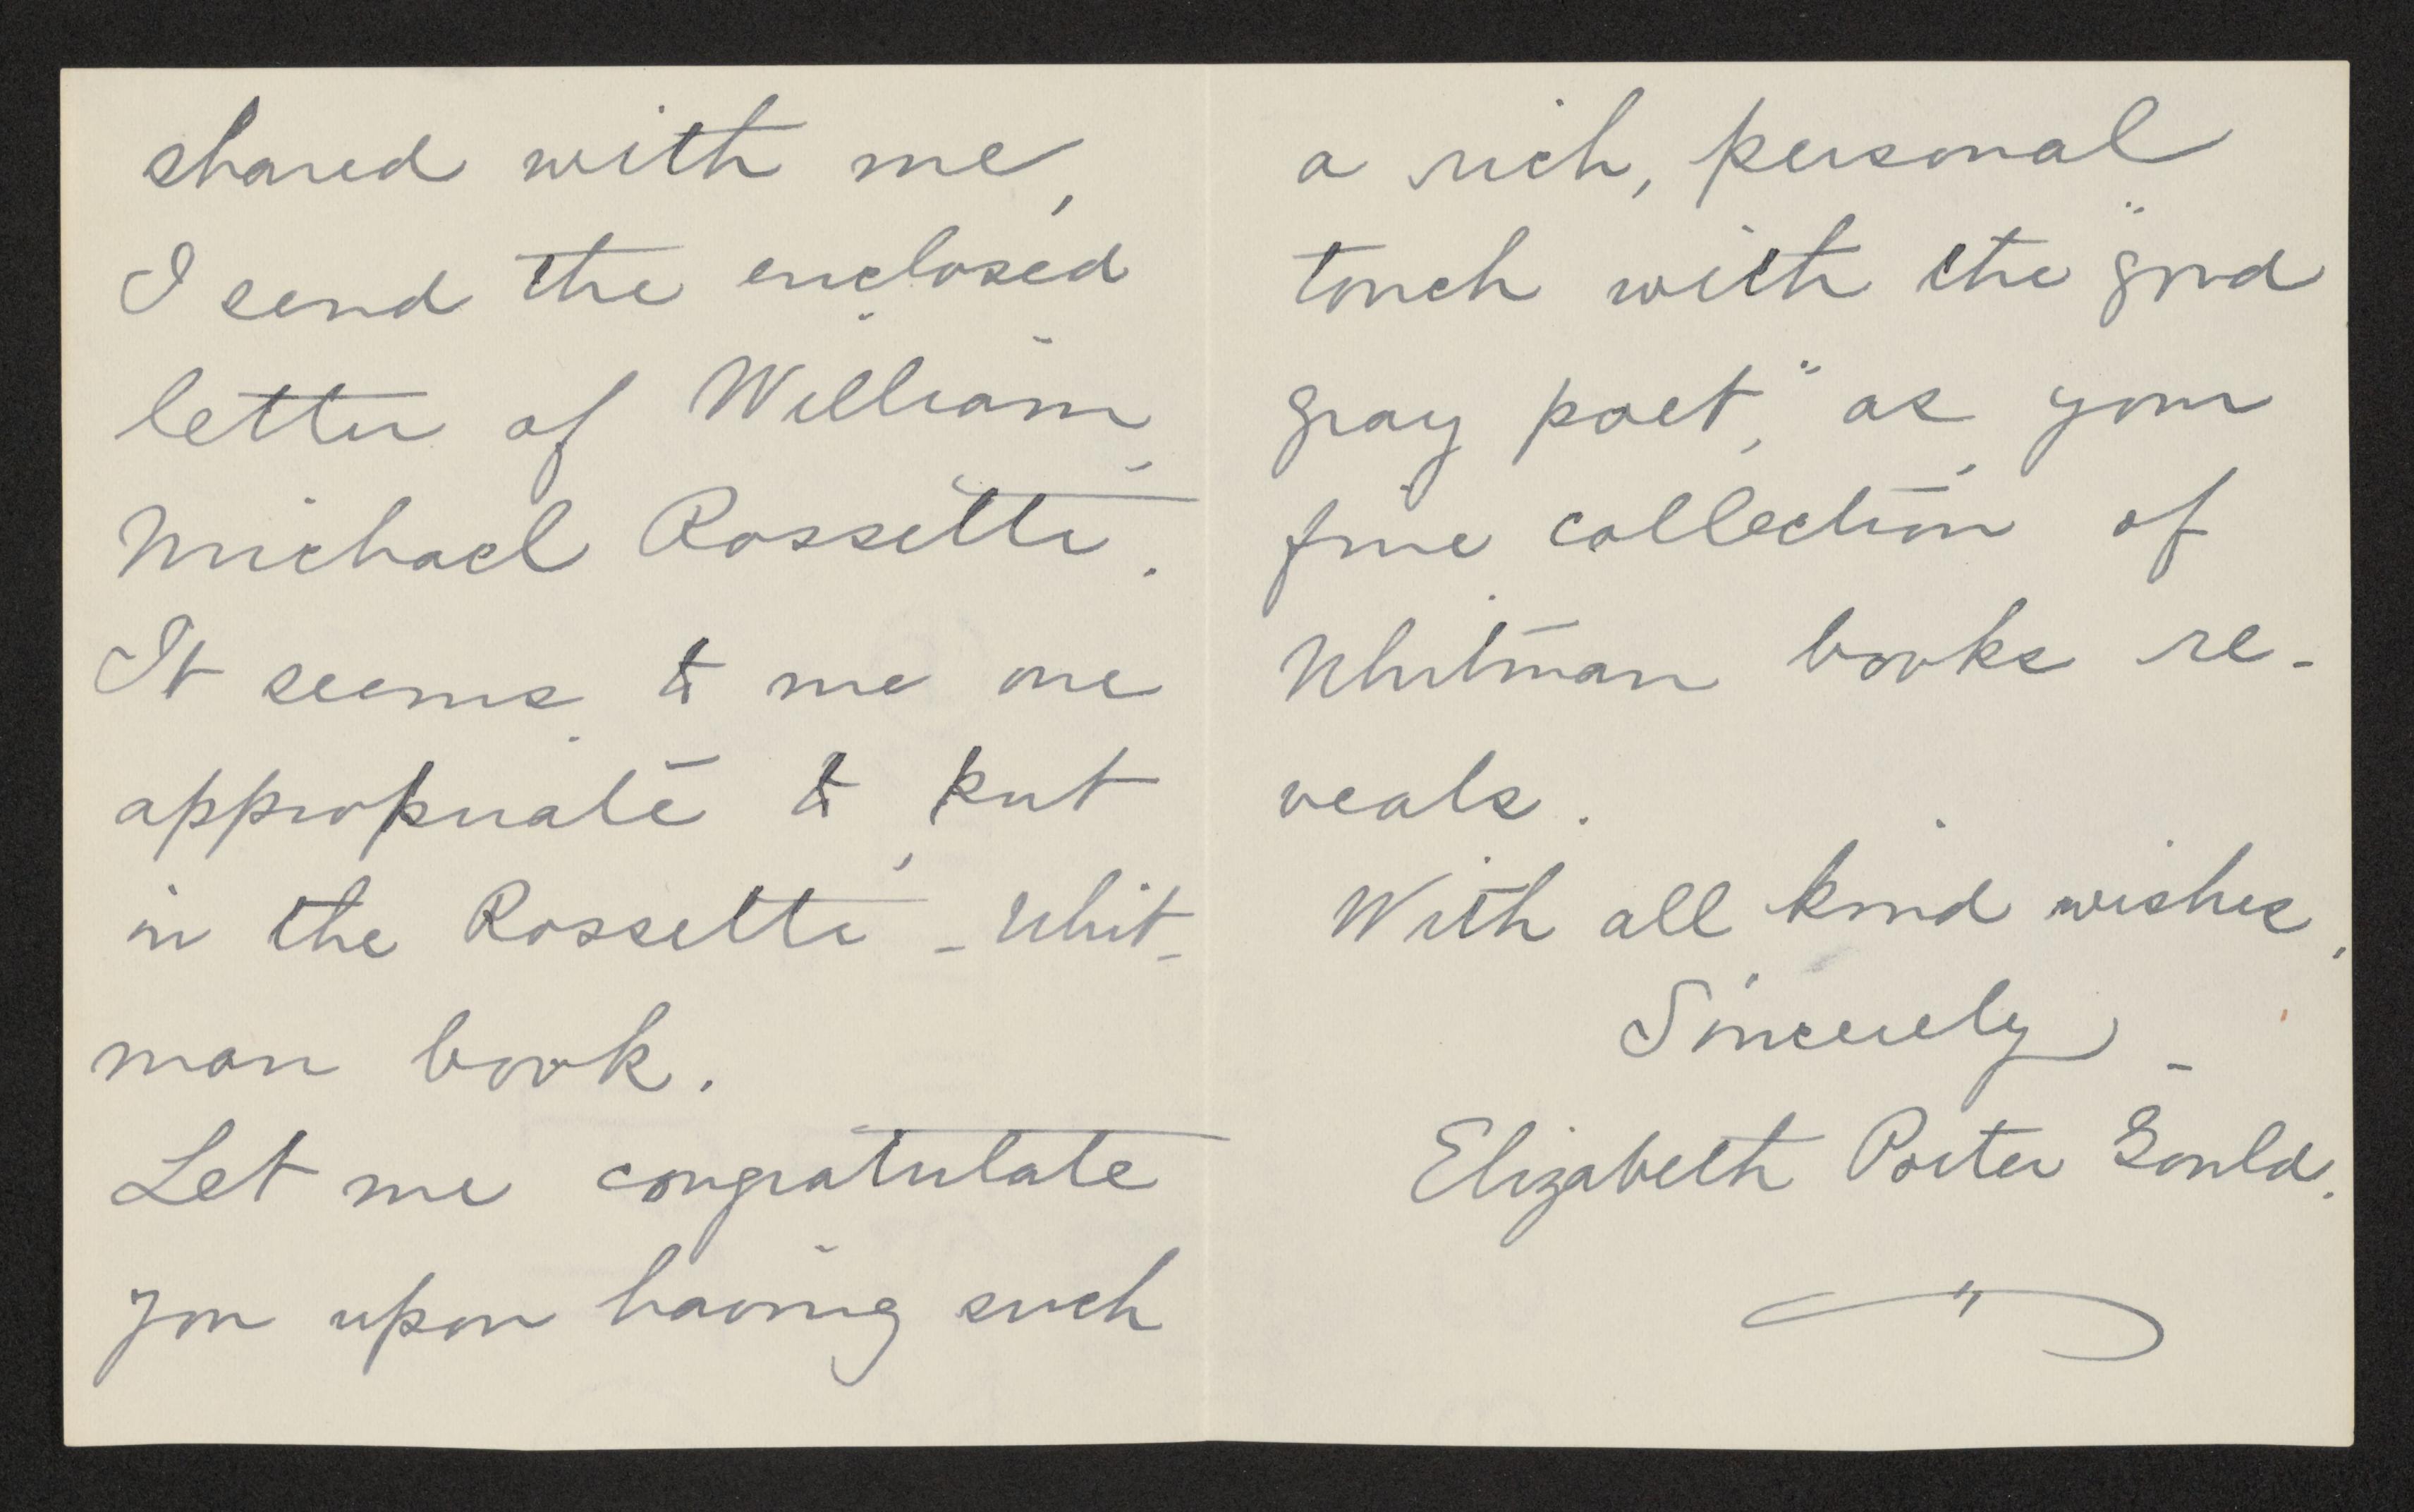 shared with me,
I send the enclosed
letter of William
Michael Rossetti.
It seems to me one
appropriate to put
in the Rossetti-Whit-
man book.
Let me congratulate
you upon having such
a rich, personal
touch with the "good
gray poet," as your
fine collection of
Whitman books re-
veals.
With all kind wishes,
Sincerely -
Elizabeth Porter Gould.